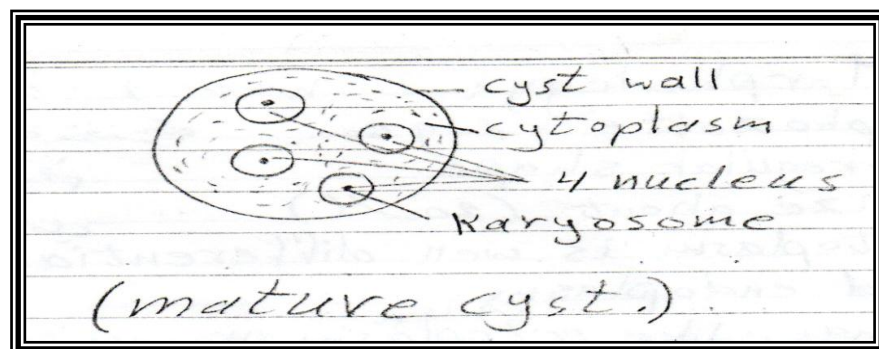 cyst wall
cytoplasm
4 nucleus
Karyosome
(mature cyst.)